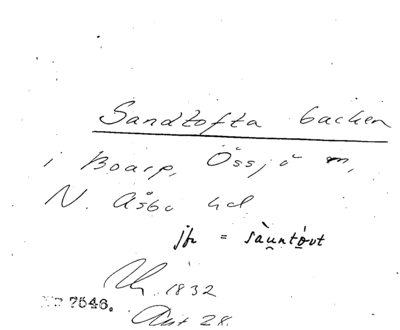 Sandtofta backen
i Boarp, Össjö m,
N. Åsbo hd
jfr = sàuntòvt
1832
7546.
28.